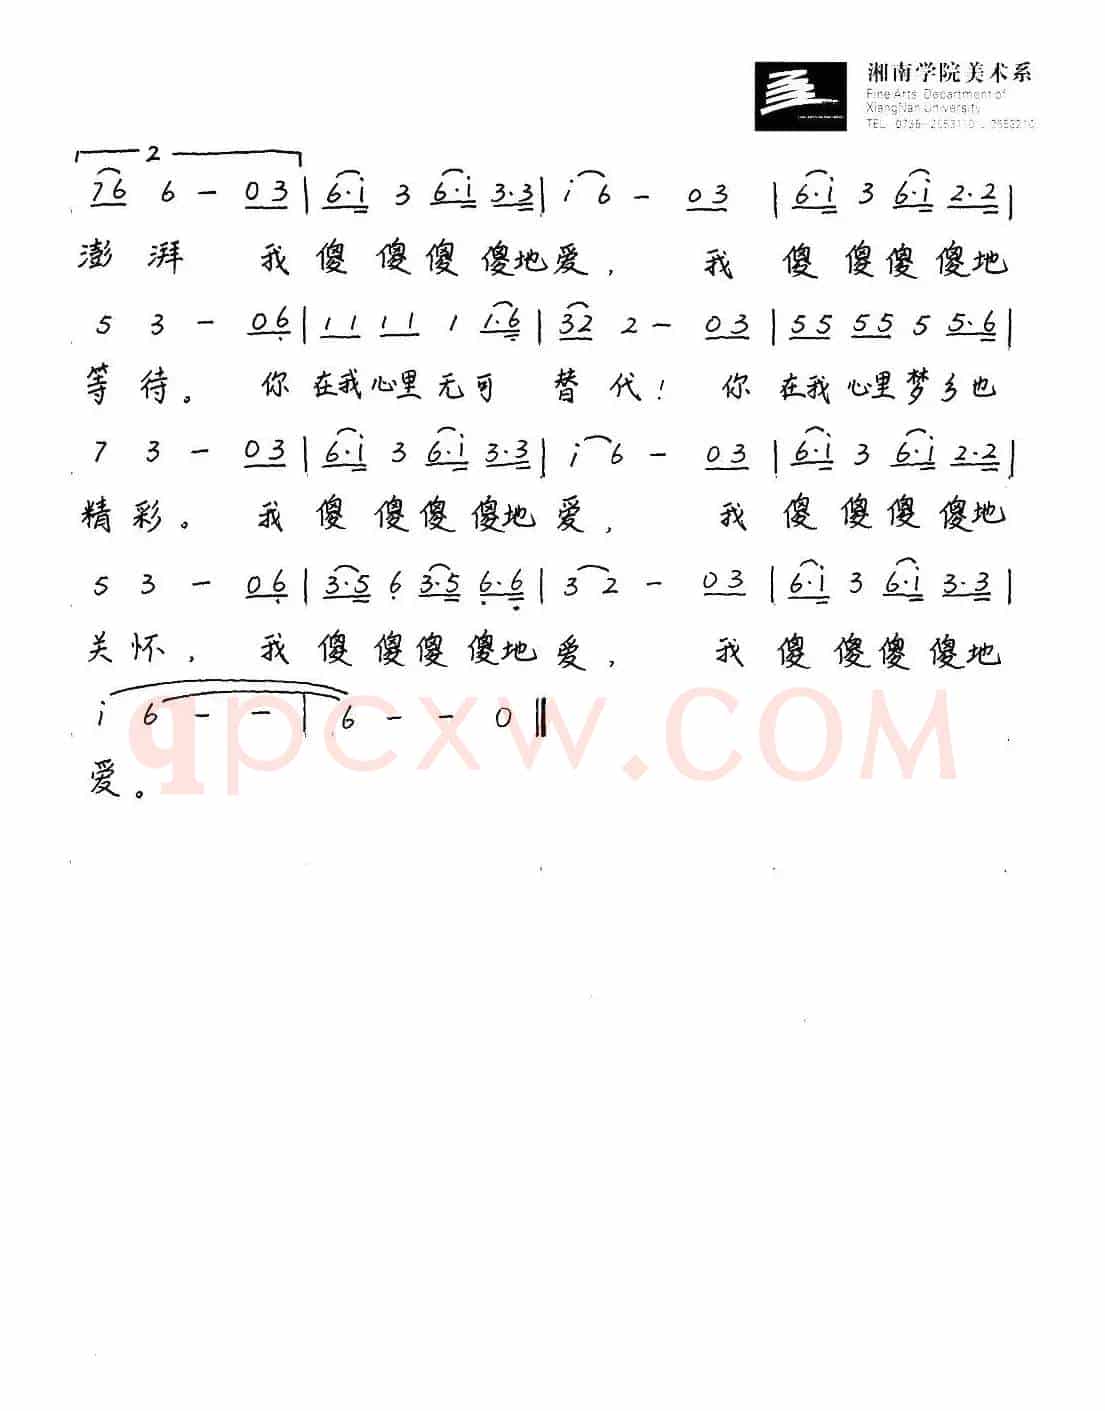 湘南学院美术系
Fine Arts Department of
XiangNan University
TEL 0735-2653110 2653210
2
76 6 - 03 | 6·i 3 6·i 3·3 | i 6 - 03 | 6·i 3 6·i 2·2 |
澎湃 我傻傻傻傻地爱, 我傻傻傻傻地
5 3 - 06 | 11 11 1 1·6 | 32 2 - 03 | 55 55 5 5·6 |
等待。 你在我心里无可 替代! 你在我心里梦乡也
7 3 - 03 | 6·i 3 6·i 3·3 | i 6 - 03 | 6·i 3 6·i 2·2 |
精彩。 我傻傻傻傻地爱, 我傻傻傻傻地
5 3 - 06 | 3·5 6 3·5 6·6 | 3 2 - 03 | 6·i 3 6·i 3·3 |
关怀, 我傻傻傻傻地爱, 我傻傻傻傻地
i 6 - - | 6 - - 0 ‖
爱。
qpcxw.COM